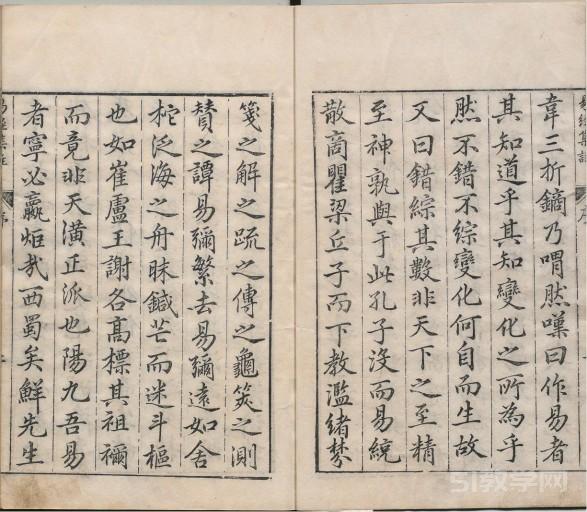 韋三折鏑乃喟然嘆曰作易者
其知道乎其知變化之所為乎
然不錯不綜變化何自而生故
又曰錯綜其數非天下之至精
至神孰與于此孔子沒而易統
散商瞿梁丘子而下教濫緒棼
箋之解之疏之傳之龜筴之測
贊之譚易彌繁去易彌遠如舍
柁泛海之舟昧鍼芒而迷斗樞
也如崔盧王謝各高標其祖禰
而竟非天潢正派也陽九吾易
者寧必嬴炬哉西蜀矣鮮先生
易經集註
序
51教学网